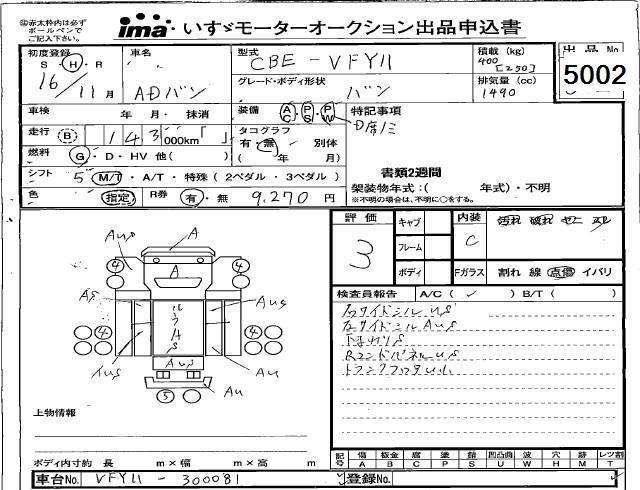 ㊟赤太枠内は必ず
ボールペンで
ご記入下さい。
ima いすゞモーターオークション出品申込書
初度登録
S・H・R
16
11月
車名
ADバン
型式
CBE-VFY11
積載(kg)
400
[250]
出品No
5002
グレード・ボディ形状
バン
排気量(cc)
1490
車検 年 月・抹消
装備 AC・PS・PW
特記事項
走行 B 143 000km「 」
タコグラフ
有・無 別体
( 年 月)
燃料 G・D・HV 他( )
書類2週間
シフト 5 M/T・A/T・特殊(2ペダル・3ペダル)
架装物年式:( 年式)・不明
※不明の場合は、不明に○をする。
色 指定 R券 有・無 9,270円
評価
3
キャブ
フレーム
ボディ
内装
C
Fガラス 割れ 線 点傷 イバリ
検査員報告 A/C(✓) B/T( )
右サイドシルUS
左サイドシルAUS
下まわりS
RエンドパネルUS
A
A
4
4
4
4
5
AUS
AU
AU
上物情報
ボディ内寸約 長 m×幅 m×高 m
記号 傷A 板金B 腐C 塗P 錆S 凹凸曲U 波W 穴H 跡M レツ割T
車台No. VFY11-300081
登録No.